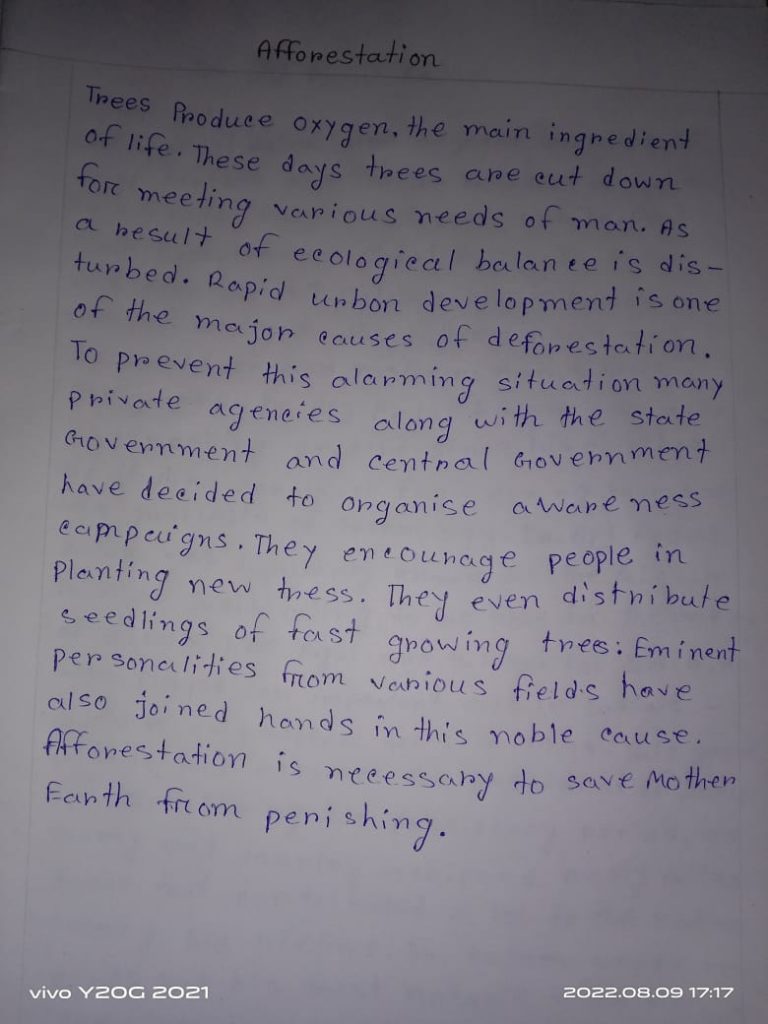 Afforestation
Trees Produce oxygen, the main ingredient
of life. These days trees are cut down
for meeting various needs of man. As
a result of ecological balance is dis-
turbed. Rapid urbon development is one
of the major causes of deforestation.
To prevent this alarming situation many
private agencies along with the state
Government and central Government
have decided to organise awareness
campaigns. They encourage people in
Planting new tress. They even distribute
seedlings of fast growing trees: Eminent
personalities from various fields have
also joined hands in this noble cause.
Afforestation is necessary to save Mother
Earth from perishing.
vivo Y20G 2021
2022.08.09 17:17